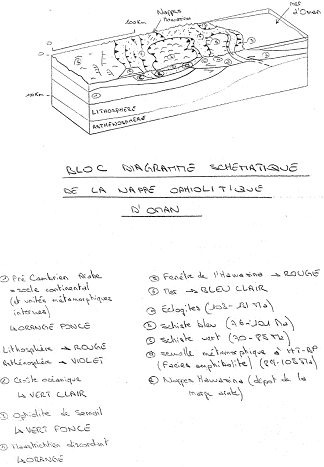 Nappes
Hawasina
mer
d'Oman
100Km
100Km
LITHOSPHÈRE
ASTHÉNOSPHÈRE
BLOC DIAGRAMME SCHÉMATIQUE
DE LA NAPPE OPHIOLITIQUE
D'OMAN
Pré Cambrien Arabe
= socle continental
(et unités métamorphiques
internes)
↳ ORANGE FONCE
Lithosphère → ROUGE
Asthénosphère → VIOLET
Croûte océanique
↳ VERT CLAIR
Ophiolite de Semail
↳ VERT FONCE
Maastrichtien discordant
↳ ORANGE
Fenêtre de l'Hawasina → ROUGE
Mer → BLEU CLAIR
Éclogites
Schiste bleu
Schiste vert
semelle métamorphique à HT-BP
(Faciès amphibolite)
Nappes Hawasina (dépot de la
marge